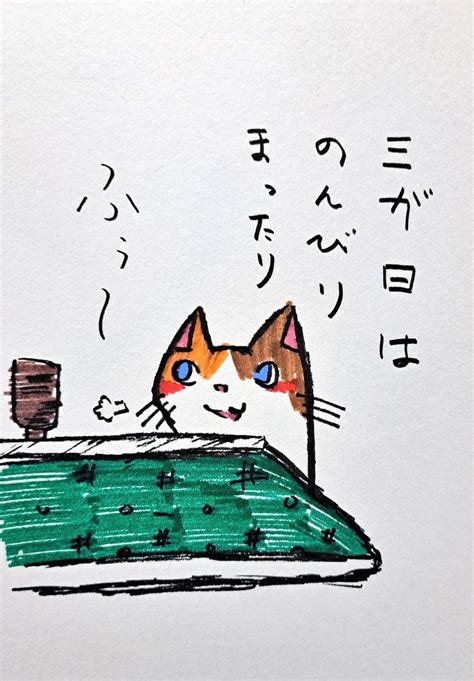 三が日は
のんびり
まったり
ふぅ〜